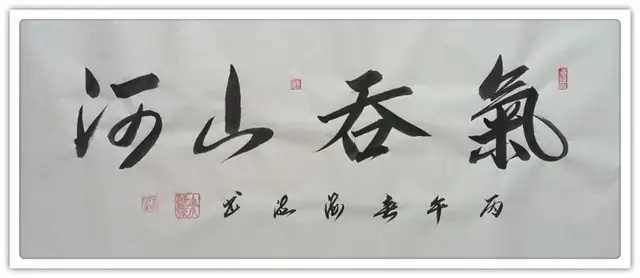 氣吞山河
丙午春
书